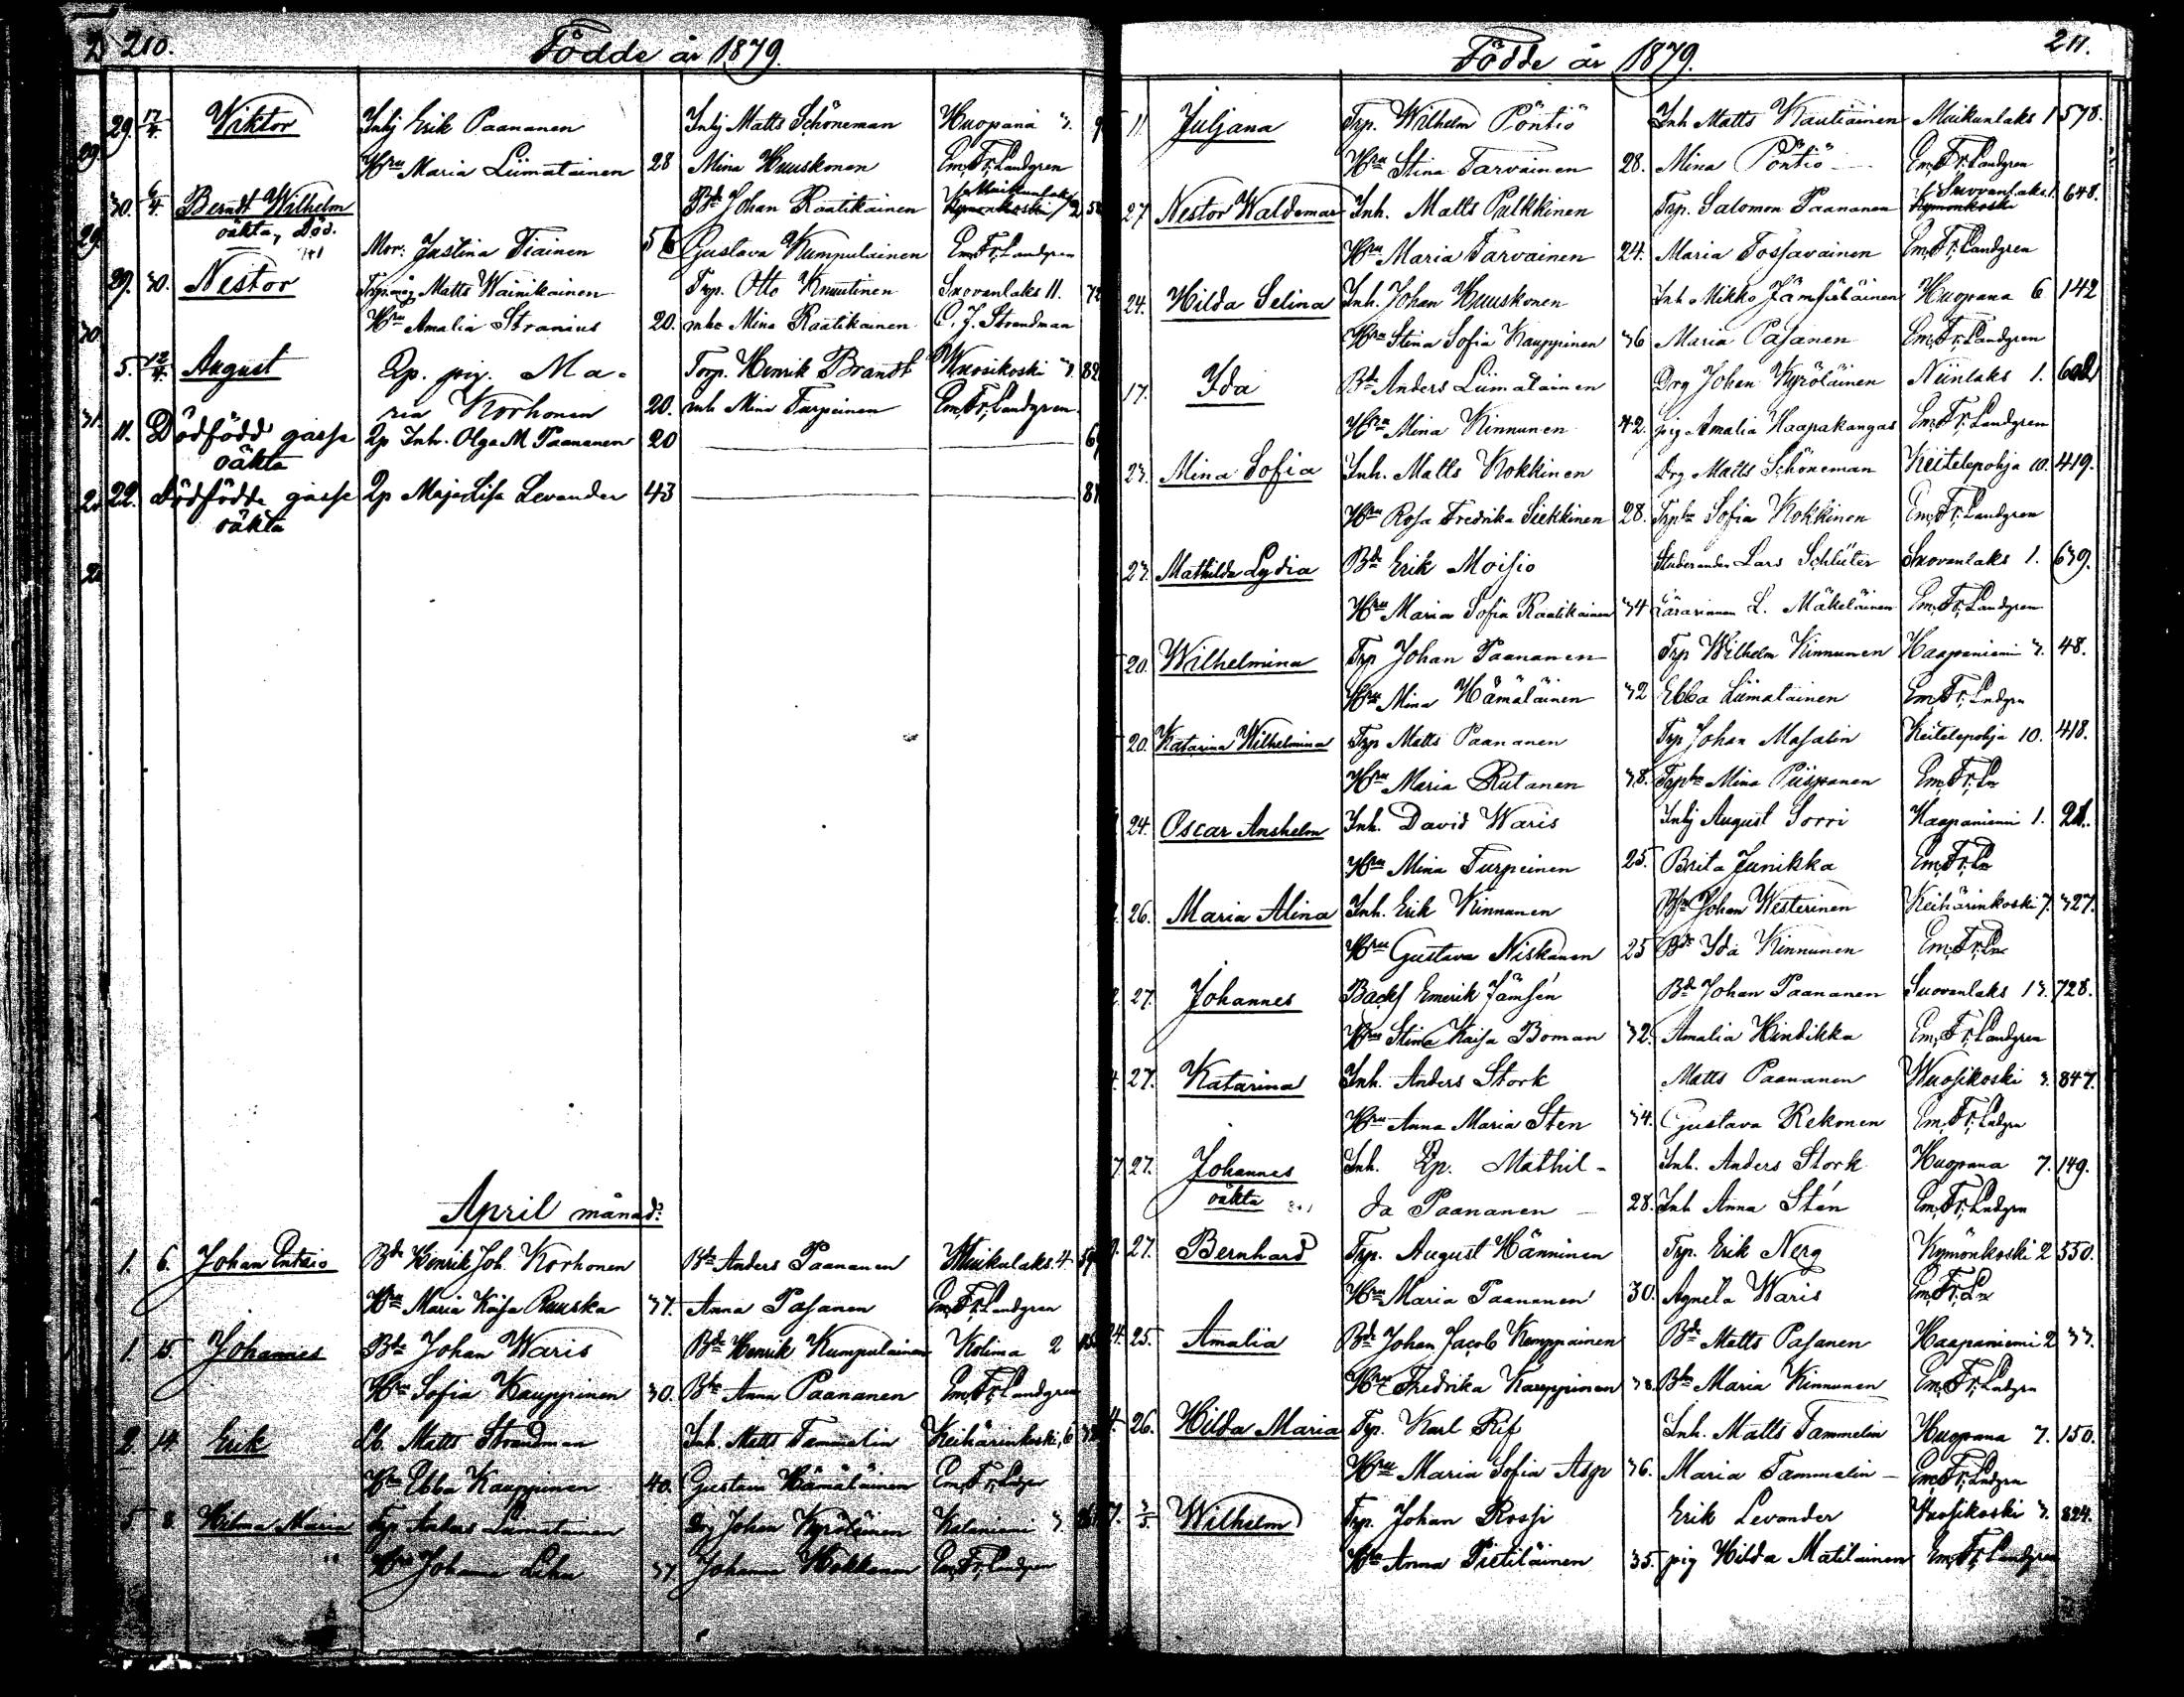 210.
Födde år 1879.
29. 17/4. Wiktor Inhj Erik Paananen Inhj Matts Schöneman Huopana 3. 9
29. Hru Maria Liimatainen 28 Mina Huuskonen Em. Fr. Landgren
30. 6/4 Berndt Wilhelm Bd Johan Raatikainen Muikunlaks 2 58
Kymönkoski
oäkta, Död.
29. Mor: Justina Tiainen 56 Gustava Kumpulainen Em. Fr. Landgren
29. 30. Nestor Trp. måg Matts Wainikainen Trp. Otto Knuutinen Suovanlaks 11. 72
30. Hru Amalia Stranius 20. Mina Raatikainen C. J. Strandman
5. 12/4. August Qp. pig. Ma- Torp. Henrik Brandt Wuosikoski 3. 82
31. ria Korhonen 20. Mina Turpeinen Em. Fr. Landgren
11. Dödfödd gosse Qp Inh. Olga M. Paananen 20 6
oäkta
22. dödfödde gosse Qp Maja Lisa Levander 43 8
oäkta
April månad:
1. 6. Johan Bd Henrik Joh. Korhonen Bd Anders Paananen Muikulaks. 4. 59
Hru Maria Kaisa Ruuska 37. Anna Pasanen Em. Fr. Landgren
1. 15. Johannes Bd Johan Waris Bd Henrik Kumpulainen Kolima 2
Hru Sofia Kauppinen 30. Anna Paananen Em. Fr. Landgren
2. 14. Erik Matts Strandman Inh. Matts Tammelin Keihärinkoski, 6
Hru Ebba Kauppinen 40. Gustava Hämäläinen Em. Fr. Ldgr
5 8 Hilma Maria Trp Anders Liimatainen Drg Johan Kyröläinen Keliniemi 3
Hru Johanna 37. Johanna Hokkanen Em. Fr. Landgren
211.
Födde år 1879.
11. Juljana Trp. Wilhelm Pöntiö Inh Matts Kautiainen Muikunlaks 1 578.
Hru Stina Tarvainen 28. Mina Pöntiö Em. Fr. Landgren
27. Nestor Waldemar Inh. Matts Pulkkinen Trp. Salomon Paananen Suovanlaks. 1. 648.
Kymönkoski
Hru Maria Tarvainen 24. Maria Tossavainen Em. Fr. Landgren
24. Hilda Selina Inh. Johan Huuskonen Inh Mikko Jämsäläinen Huopana 6 142
Hru Stina Sofia Kauppinen 36 Maria Pasanen Em. Fr. Landgren
17. Ida Bd Anders Liimatainen Drg Johan Kyröläinen Niinlaks 1.
Hru Mina Kinnunen 42. pig Amalia Haapakangas Em. Fr. Landgren
23. Mina Sofia Inh. Matts Kokkinen Drg Matts Schöneman Keitelepohja 10. 419.
Hru Rosa Fredrika Siekkinen 28. Sofia Kokkinen Em. Fr. Landgren
23. Mathilda Lydia Bd Erik Moisio Studeranden Lars Schlüter Suovanlaks 1. 639.
Hru Maria Sofia Raatikainen 34 Lärarinnan L. Mäkeläinen Em. Fr. Landgren
20. Wilhelmina Trp Johan Paananen Trp Wilhelm Kinnunen Haapaniemi 3. 48.
Hru Mina Hämäläinen 32 Ebba Liimatainen Em. Fr. Lndgrn
20. Katarina Wilhelmina Trp Matts Paananen Trp Johan Masalin Keitelepohja 10. 418.
Hru Maria Rutanen 38. Mina Piispanen Em. Fr. Ln
24. Oscar Anshelm Inh. David Waris Inhj August Sorri Haapaniemi 1. 21.
Hru Mina Turpeinen 25. Brita Junikka Em. Fr. Ln
26. Maria Alina Inh. Erik Kinnunen Johan Westerinen Keihärinkoski 7. 327.
Hru Gustava Niskanen 25 Ida Kinnunen Em. Fr. Ln
27. Johannes Backs Emerik Jämsén Bd Johan Paananen Suovanlaks 13. 728.
Hru Stina Kaisa Boman 32. Amalia Hindikka Em. Fr. Landgren
27. Katarina Inh. Anders Stork Matts Paananen Wuosikoski 3. 847.
Hru Anna Maria Sten 34. Gustava Rekonen Em. Fr. Lndgrn
27. Johannes Inh. Qp. Mathil- Inh. Anders Stork Huopana 7. 149.
oäkta da Paananen 28. Inh Anna Stén Em. Fr. Lndgrn
27. Bernhard Trp. August Hänninen Trp. Erik Nerg Kymönkoski 2 550.
Hru Maria Paananen 30. Agneta Waris Em. Fr. Ln
25. Amalia Bd Johan Jacob Kemppainen Bd Matts Pasanen Haapaniemi 2 33.
Hru Fredrika Kauppinen 38. Maria Kinnunen Em. Fr. Lndgrn
26. Hilda Maria Trp. Karl Rif Inh. Matts Tammelin Huopana 7. 150.
Hru Maria Sofia Asp 36. Maria Tammelin Em. Fr. Lndgrn
3/5. Wilhelm Trp. Johan Rossi Erik Levander Wuosikoski 3. 824.
Hru Anna Pietiläinen 35. pig Hilda Matilainen Em. Fr. Landgren